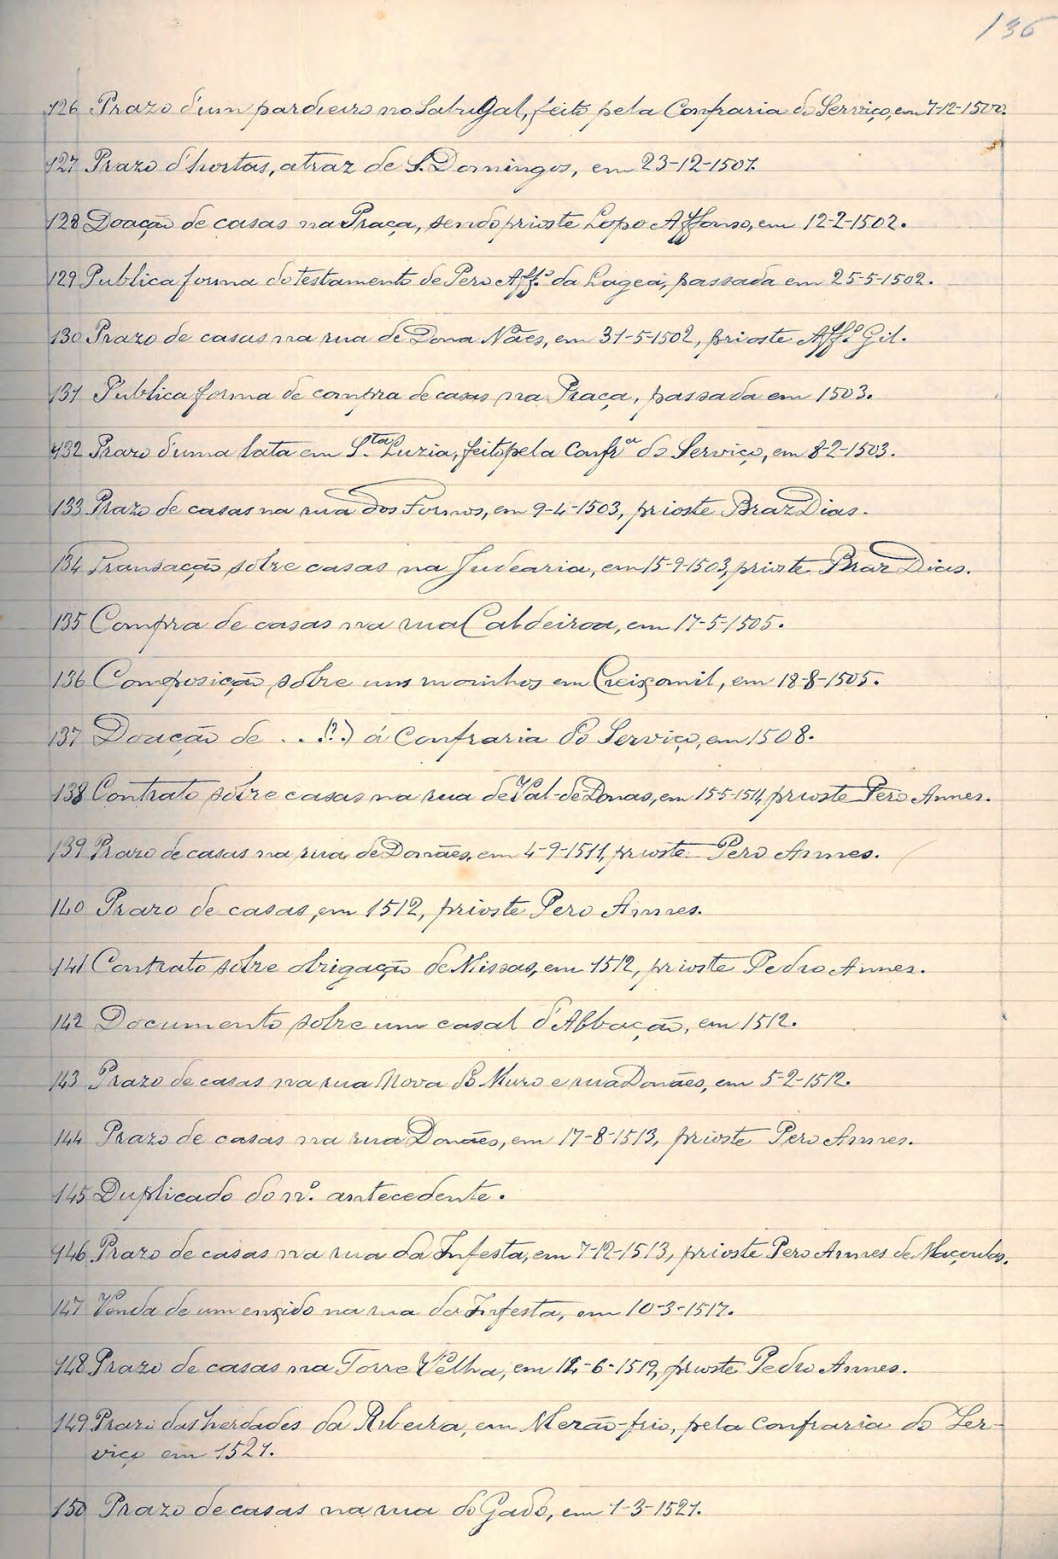 136
126 Prazo d'um pardieiro no Sabugal, feito pela Confraria do Serviço, em 7-12-1500.
127 Prazo d'hortas, atraz de S. Domingos, em 23-12-1501.
128 Doação de casas na Praça, sendo prioste Lopo Affonso, em 12-2-1502.
129 Publica forma do testamento de Pero Aff.º da Lagea, passada em 25-5-1502.
130 Prazo de casas na rua de Dona Nães, em 31-5-1502, prioste Aff.º Gil.
131 Publica forma de compra de casas na Praça, passada em 1503.
132 Prazo d'uma lata em S.ta Luzia, feito pela Confr.ª do Serviço, em 8-2-1503.
133 Prazo de casas na rua dos Fornos, em 9-4-1503, prioste Braz Dias.
134 Transacção sobre casas na Judearia, em 15-9-1503, prioste Braz Dias.
135 Compra de casas na rua Caldeiroa, em 17-5-1505.
136 Composição sobre uns moinhos em Creixomil, em 18-8-1505.
137 Doação de ...(?) á Confraria do Serviço, em 1508.
138 Contrato sobre casas na rua de Val-de-Donas, em 15-5-1511, prioste Pero Annes.
139 Prazo de casas na rua de Donães, em 4-9-1511, prioste Pero Annes.
140 Prazo de casas, em 1512, prioste Pero Annes.
141 Contrato sobre obrigação de Missas, em 1512, prioste Pedro Annes.
142 Documento sobre um casal d'Abbação, em 1512.
143 Prazo de casas na rua Nova do Muro e rua Donães, em 5-2-1512.
144 Prazo de casas na rua Donães, em 17-8-1513, prioste Pero Annes.
145 Duplicado do n.º antecedente.
146 Prazo de casas na rua da Infesta, em 7-12-1513, prioste Pero Annes de Maçoulas.
147 Venda de um enxido na rua da Infesta, em 10-3-1517.
148 Prazo de casas na Torre Velha, em 12-6-1519, prioste Pedro Annes.
149 Prazo das herdades da Ribeira, em Mezão-frio, pela Confraria do Ser-
viço em 1521.
150 Prazo de casas na rua do Gado, em 1-3-1521.